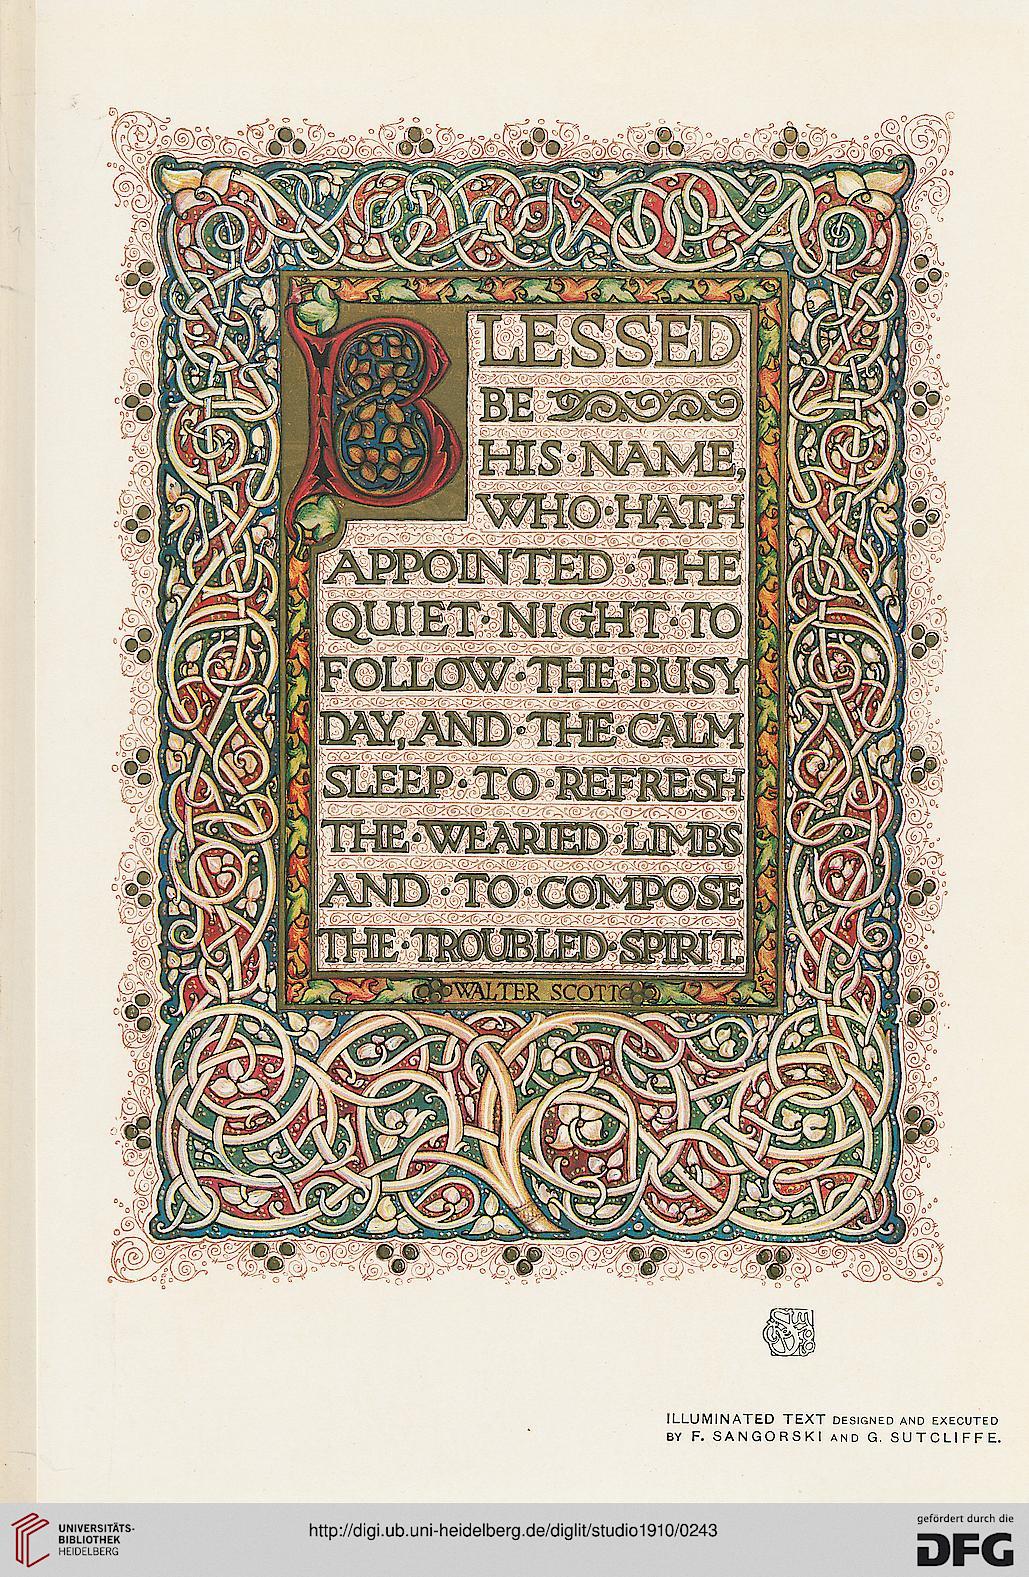 BLESSED
BE
HIS·NAME,
WHO·HATH
APPOINTED·THE
QUIET·NIGHT·TO
FOLLOW·THE·BUSY
DAY, AND·THE·CALM
SLEEP·TO·REFRESH
THE·WEARIED·LIMBS
AND·TO·COMPOSE
THE·TROUBLED·SPIRIT.
WALTER SCOTT
ILLUMINATED TEXT DESIGNED AND EXECUTED
BY F. SANGORSKI AND G. SUTCLIFFE.
UNIVERSITÄTS-
BIBLIOTHEK
HEIDELBERG
http://digi.ub.uni-heidelberg.de/diglit/studio1910/0243
gefördert durch die
DFG